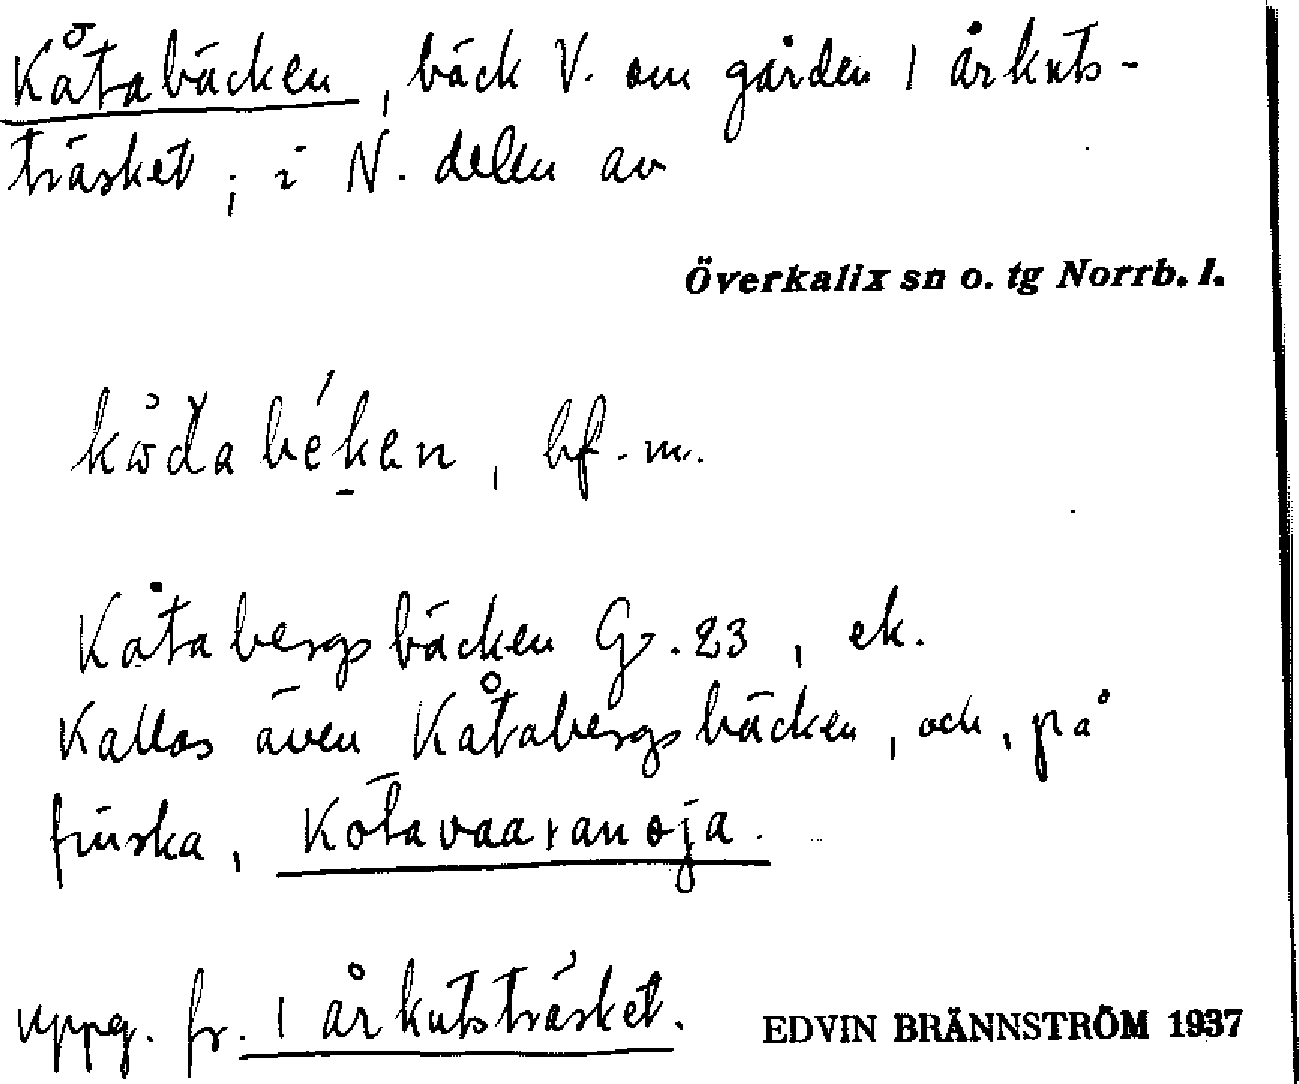 Kåtabäcken, bäck V. om gården 1 årkuts-
träsket; i N. delen av
Överkalix sn o. tg Norrb. l.
bf. m.
Kåtabergsbäcken Gs. 23, ek.
Kallas även Kåtabergsbäcken, och, på
finska, Kotavaaranoja.
uppg. fr. 1 årkutsträsket.
EDVIN BRÄNNSTRÖM 1937